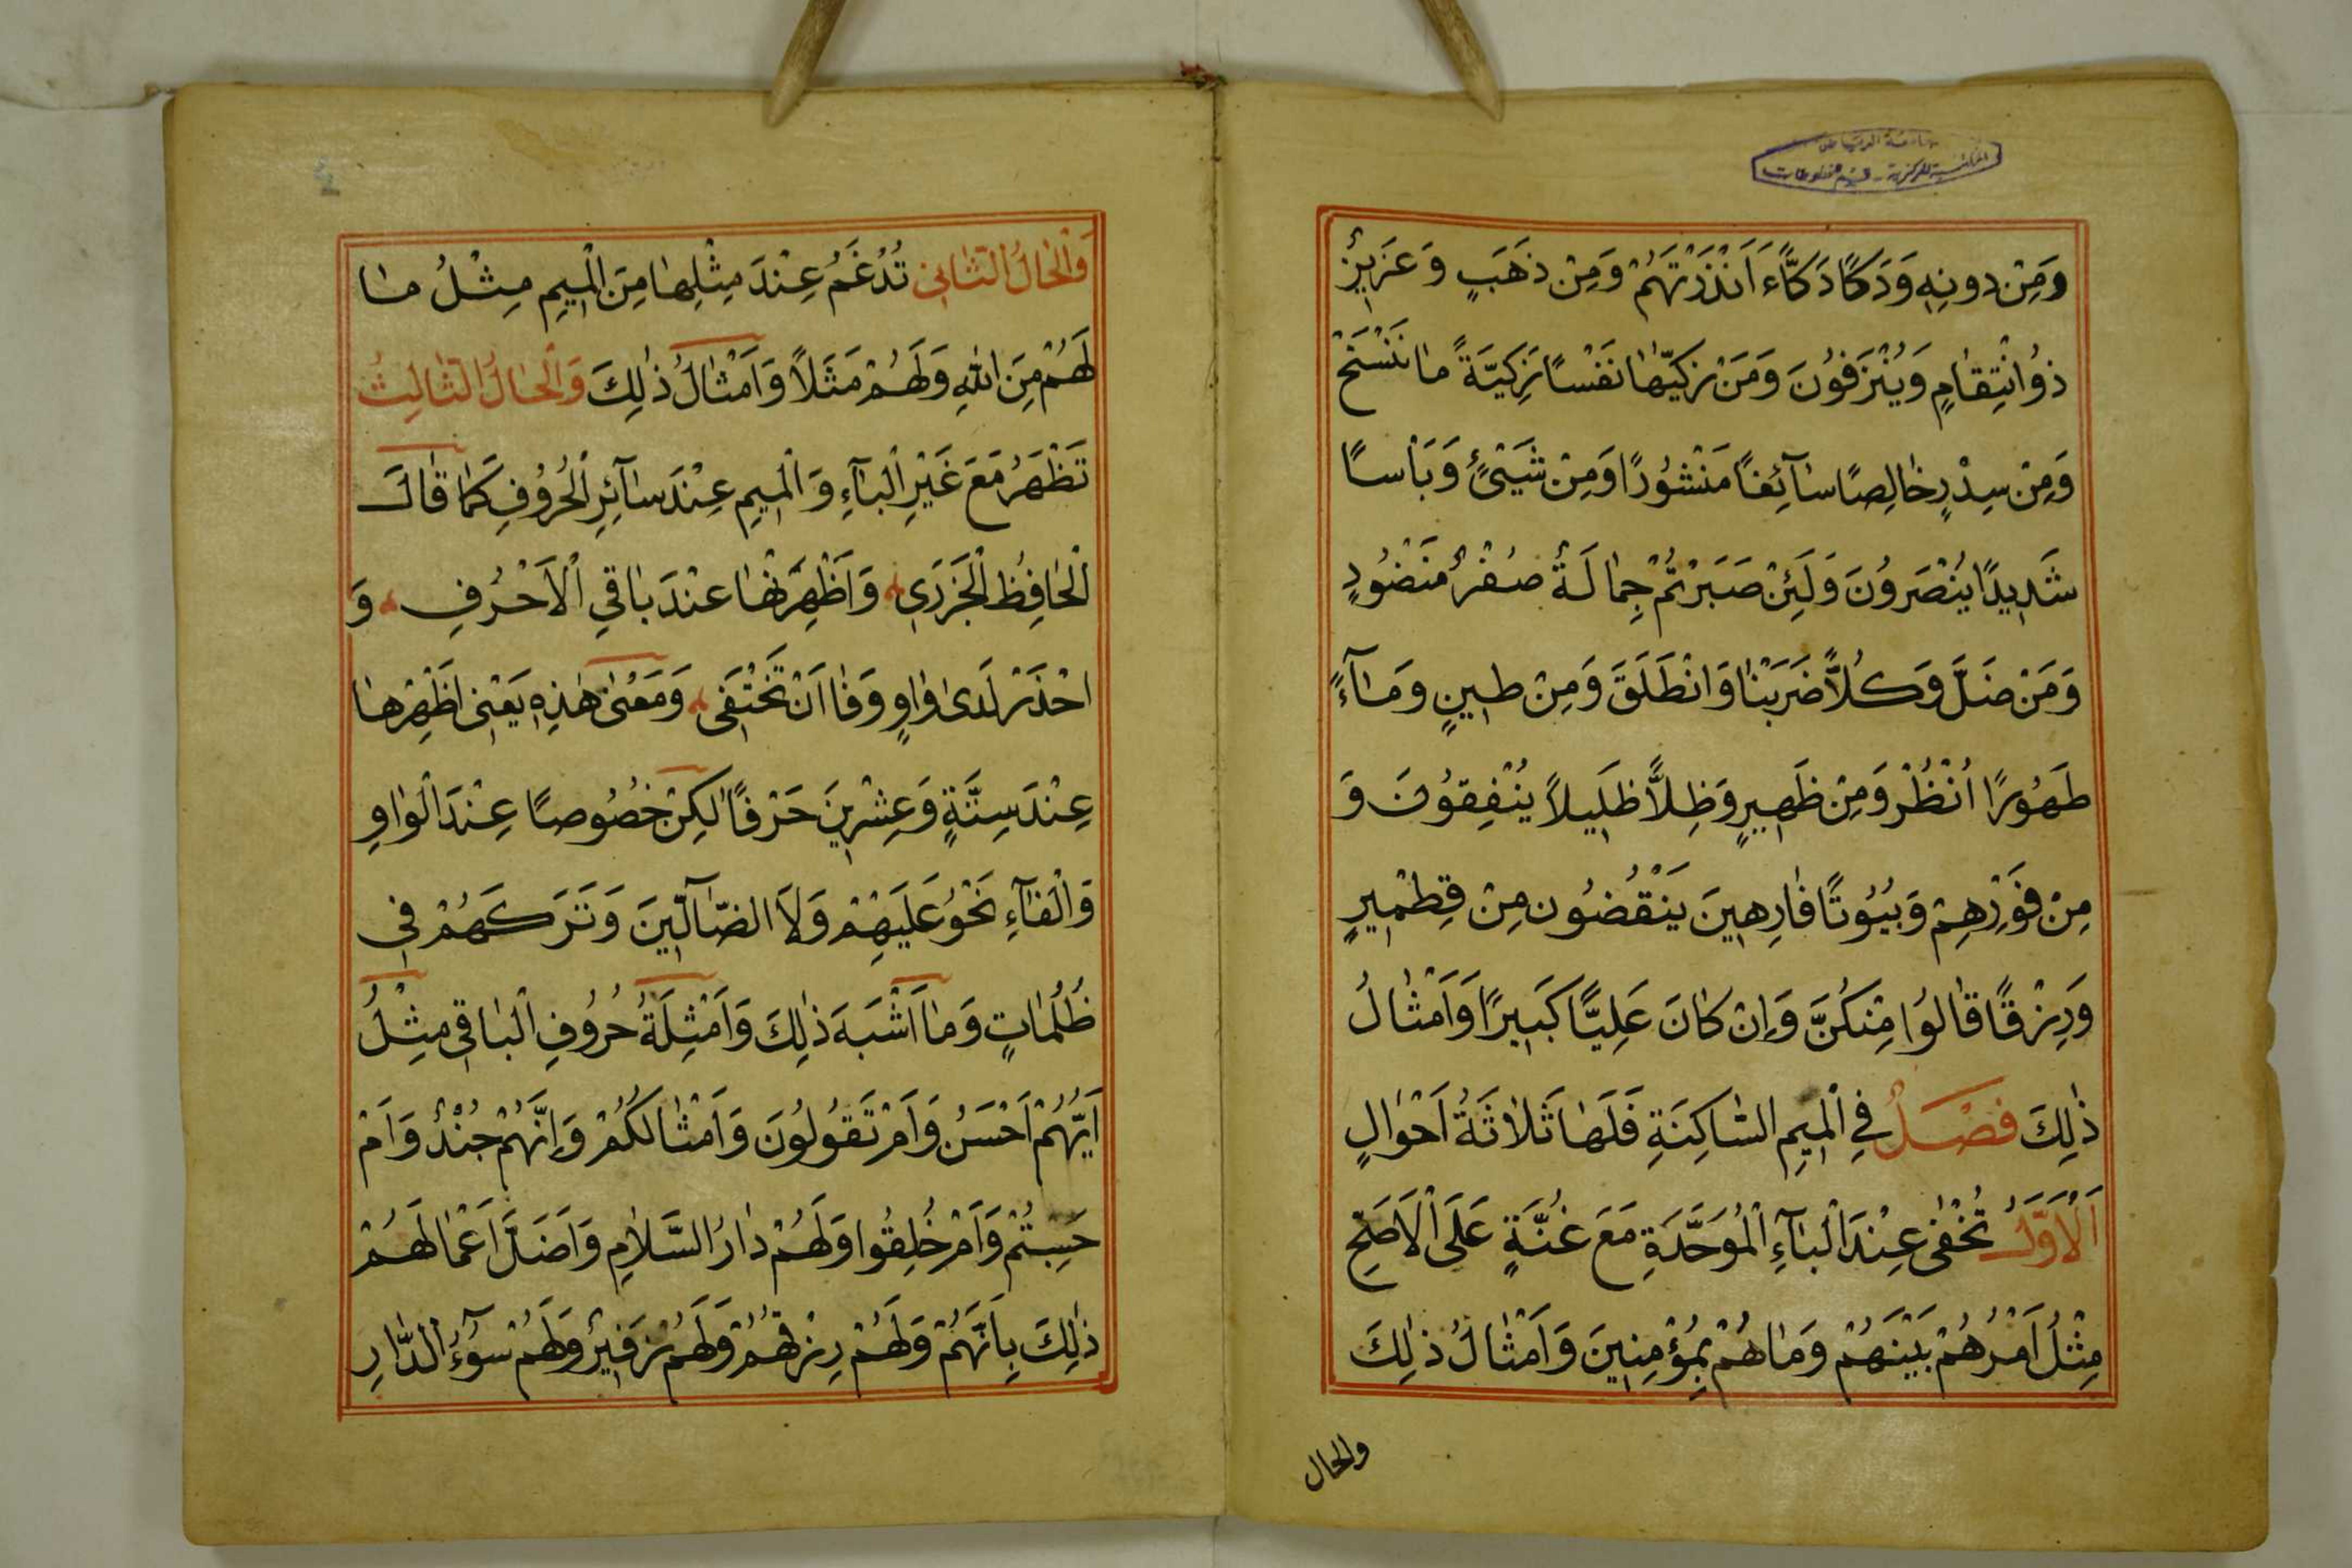 جامعة الرياض
المكتبة المركزية - قسم المخطوطات
وَمِنْ دونِهِ وَدَكًا دَكًّاء اَنْذَرْتَهُمْ وَمِنْ ذَهَبٍ وَعَزَيزٌ
ذوُانْتِقٰامٍ وَيُنْزَفوُنَ وَمَنْ زكيّهٰا نَفْسًا زَكِيَّةً مٰا نَنْسَخْ
وَمِنْ سِدْرٍ خٰالِصًا سٰآئِغًا مَنْشوُرًا وَمِنْ شَيْئٍ وَبَاْسًا
شَديدًا يُنْصَروُنَ وَلَئِنْ صَبَرْتُمْ جِمٰالَةٌ صُفْرٌ مَنْضوُدٍ
وَمَنْ ضَلَّ وَكُلاًّ ضَرَبْنٰا وَانْطَلَقَ وَمِنْ طينٍ وَمٰآءً
طَهوُرًا اُنْظُرْ وَمِنْ ظَهيرٍ وَظِلاًّ ظَليلاً يُنْفِقوُنَ وَ
مِنْ فَوْرِهِمْ وَبُيُوتًا فٰارِهينَ يَنْقُضوُن مِنْ قِطْميرٍ
وَرِزْقًا قٰالوُا مِنْكُنَّ وَاِنْ كٰانَ عَلِيًّا كَبيرًا وَاَمْثٰالُ
ذٰلِكَ فَصْلٌ فِي الْميمِ السّٰاكِنَةِ فَلَهٰا ثَلاٰثَةُ اَحْوٰالٍ
اَلْاَوَّلُ تُخْفىٰ عِنْدَ الْبٰآءِ الْمُوَحَّدَةِ مَعَ غُنَّةٍ عَلَى الْاَصَحِّ
مِثْلُ اَمْرُهُمْ بَيْنَهُمْ وَمٰا هُمْ بِمُؤْمِنينَ وَاَمْثٰالُ ذٰلِكَ
والحال
وَالْحٰالُ الثّٰانى تُدْغَمُ عِنْدَ مِثْلِهٰا مِنَ الْميمِ مِثْلُ مٰا
لَهُمْ مِنَ اللّٰهِ وَلَهُمْ مَثَلاً وَاَمْثٰالُ ذٰلِكَ وَالْحٰالُ الثّٰالِثُ
تَظْهَرُ مَعَ غَيْرِ الْبٰآءِ وَالْميمِ عِنْدَ سٰآئِرِ الْحُروُفِ كَمٰا قٰالَ
الْحٰافِظُ الْجَزَرى وَاَظْهِرَنْهٰا عِنْدَ بٰاقِي الْاَحْرُفِ وَ
احْذَرْ لَدىٰ وٰاوٍ وَفٰا اَنْ تَخْتَفى وَمَعْنىٰ هٰذِهِ يَعْنى اَظْهِرْهٰا
عِنْدَ سِتَّةٍ وَعِشْرينَ حَرْفًا لٰكِنْ خُصوُصًا عِنْدَ الْوٰاوِ
وَالْفٰآءِ نَحْوُ عَلَيْهِمْ وَلاَ الضّٰآلّينَ وَتَرَكَهُمْ فى
ظُلُمٰاتٍ وَمٰا اَشْبَهَ ذٰلِكَ وَاَمْثِلَةُ حُروُفِ الْبٰاقى مِثْلُ
اَيُّهُمْ اَحْسَنُ وَاَمْ تَقوُلوُنَ وَاَمْثٰالُكُمْ وَاِنَّهُمْ جُنْدٌ وَاَمْ
حَسِبْتُمْ وَاَمْ خُلِقُوا وَلَهُمْ دٰارُ السَّلاٰمِ وَاَضَلَّ اَعْمٰالَهُمْ
ذٰلِكَ بِاَنَّهُمْ وَلَهُمْ رِزْقُهُمْ وَلَهُمْ زَفيرٌ وَلَهُمْ سوُٓءُ الدّٰارِ